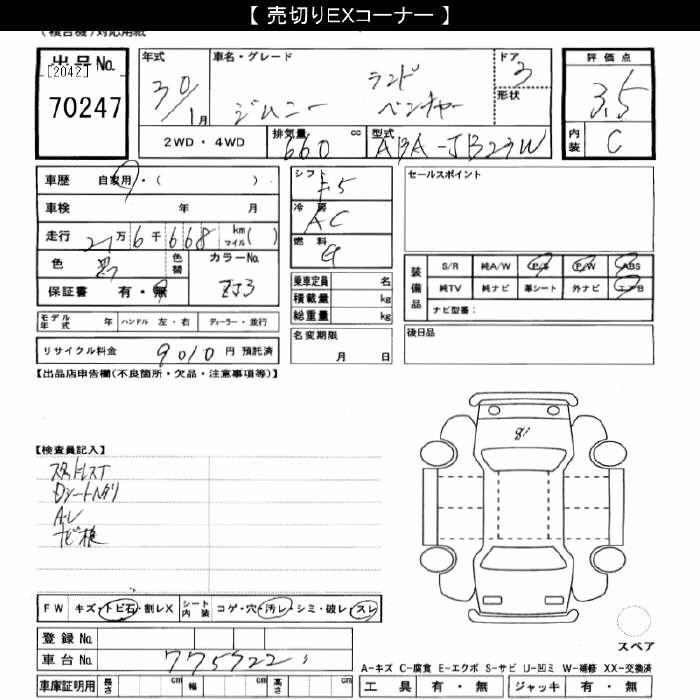 【 売切りEXコーナー 】
(複合機)対応用紙
出品No.
[2042]
70247
年式 30/1月
車名・グレード ジムニー ランドベンチャー
ドア 3
形状
2WD・4WD
排気量 660 cc
型式 ABA-JB23W
評価点 3.5
内装 C
車歴 自家用・( )
車検 年 月
走行 21万6千668 km マイル( )
色 黒 色替 カラーNo. ZJ3
保証書 有・無
モデル年式 年 ハンドル 左・右 ディーラー・並行
リサイクル料金 9010 円 預託済
シフト F5
冷房 AC
燃料 G
乗車定員 名
積載量 kg
総重量 kg
名変期限 月 日
セールスポイント
装備品
S/R 純A/W P/S P/W ABS
純TV 純ナビ 革シート 外ナビ エアB
ナビ型番:
後日品
【出品店申告欄(不良箇所・欠品・注意事項等)】
【検査員記入】
スタットレスT
Dシートヘタリ
ナビ検
FW キズ・トビ石・割レX シート内装 コゲ・穴・汚レ・シミ・破レ・スレ
登録No.
車台No. 775722
車庫証明用 長さ cm 幅 cm 高さ cm
スペア
A-キズ C-腐食 E-エクボ S-サビ U-凹ミ W-補修 XX-交換済
工具 有・無 ジャッキ 有・無